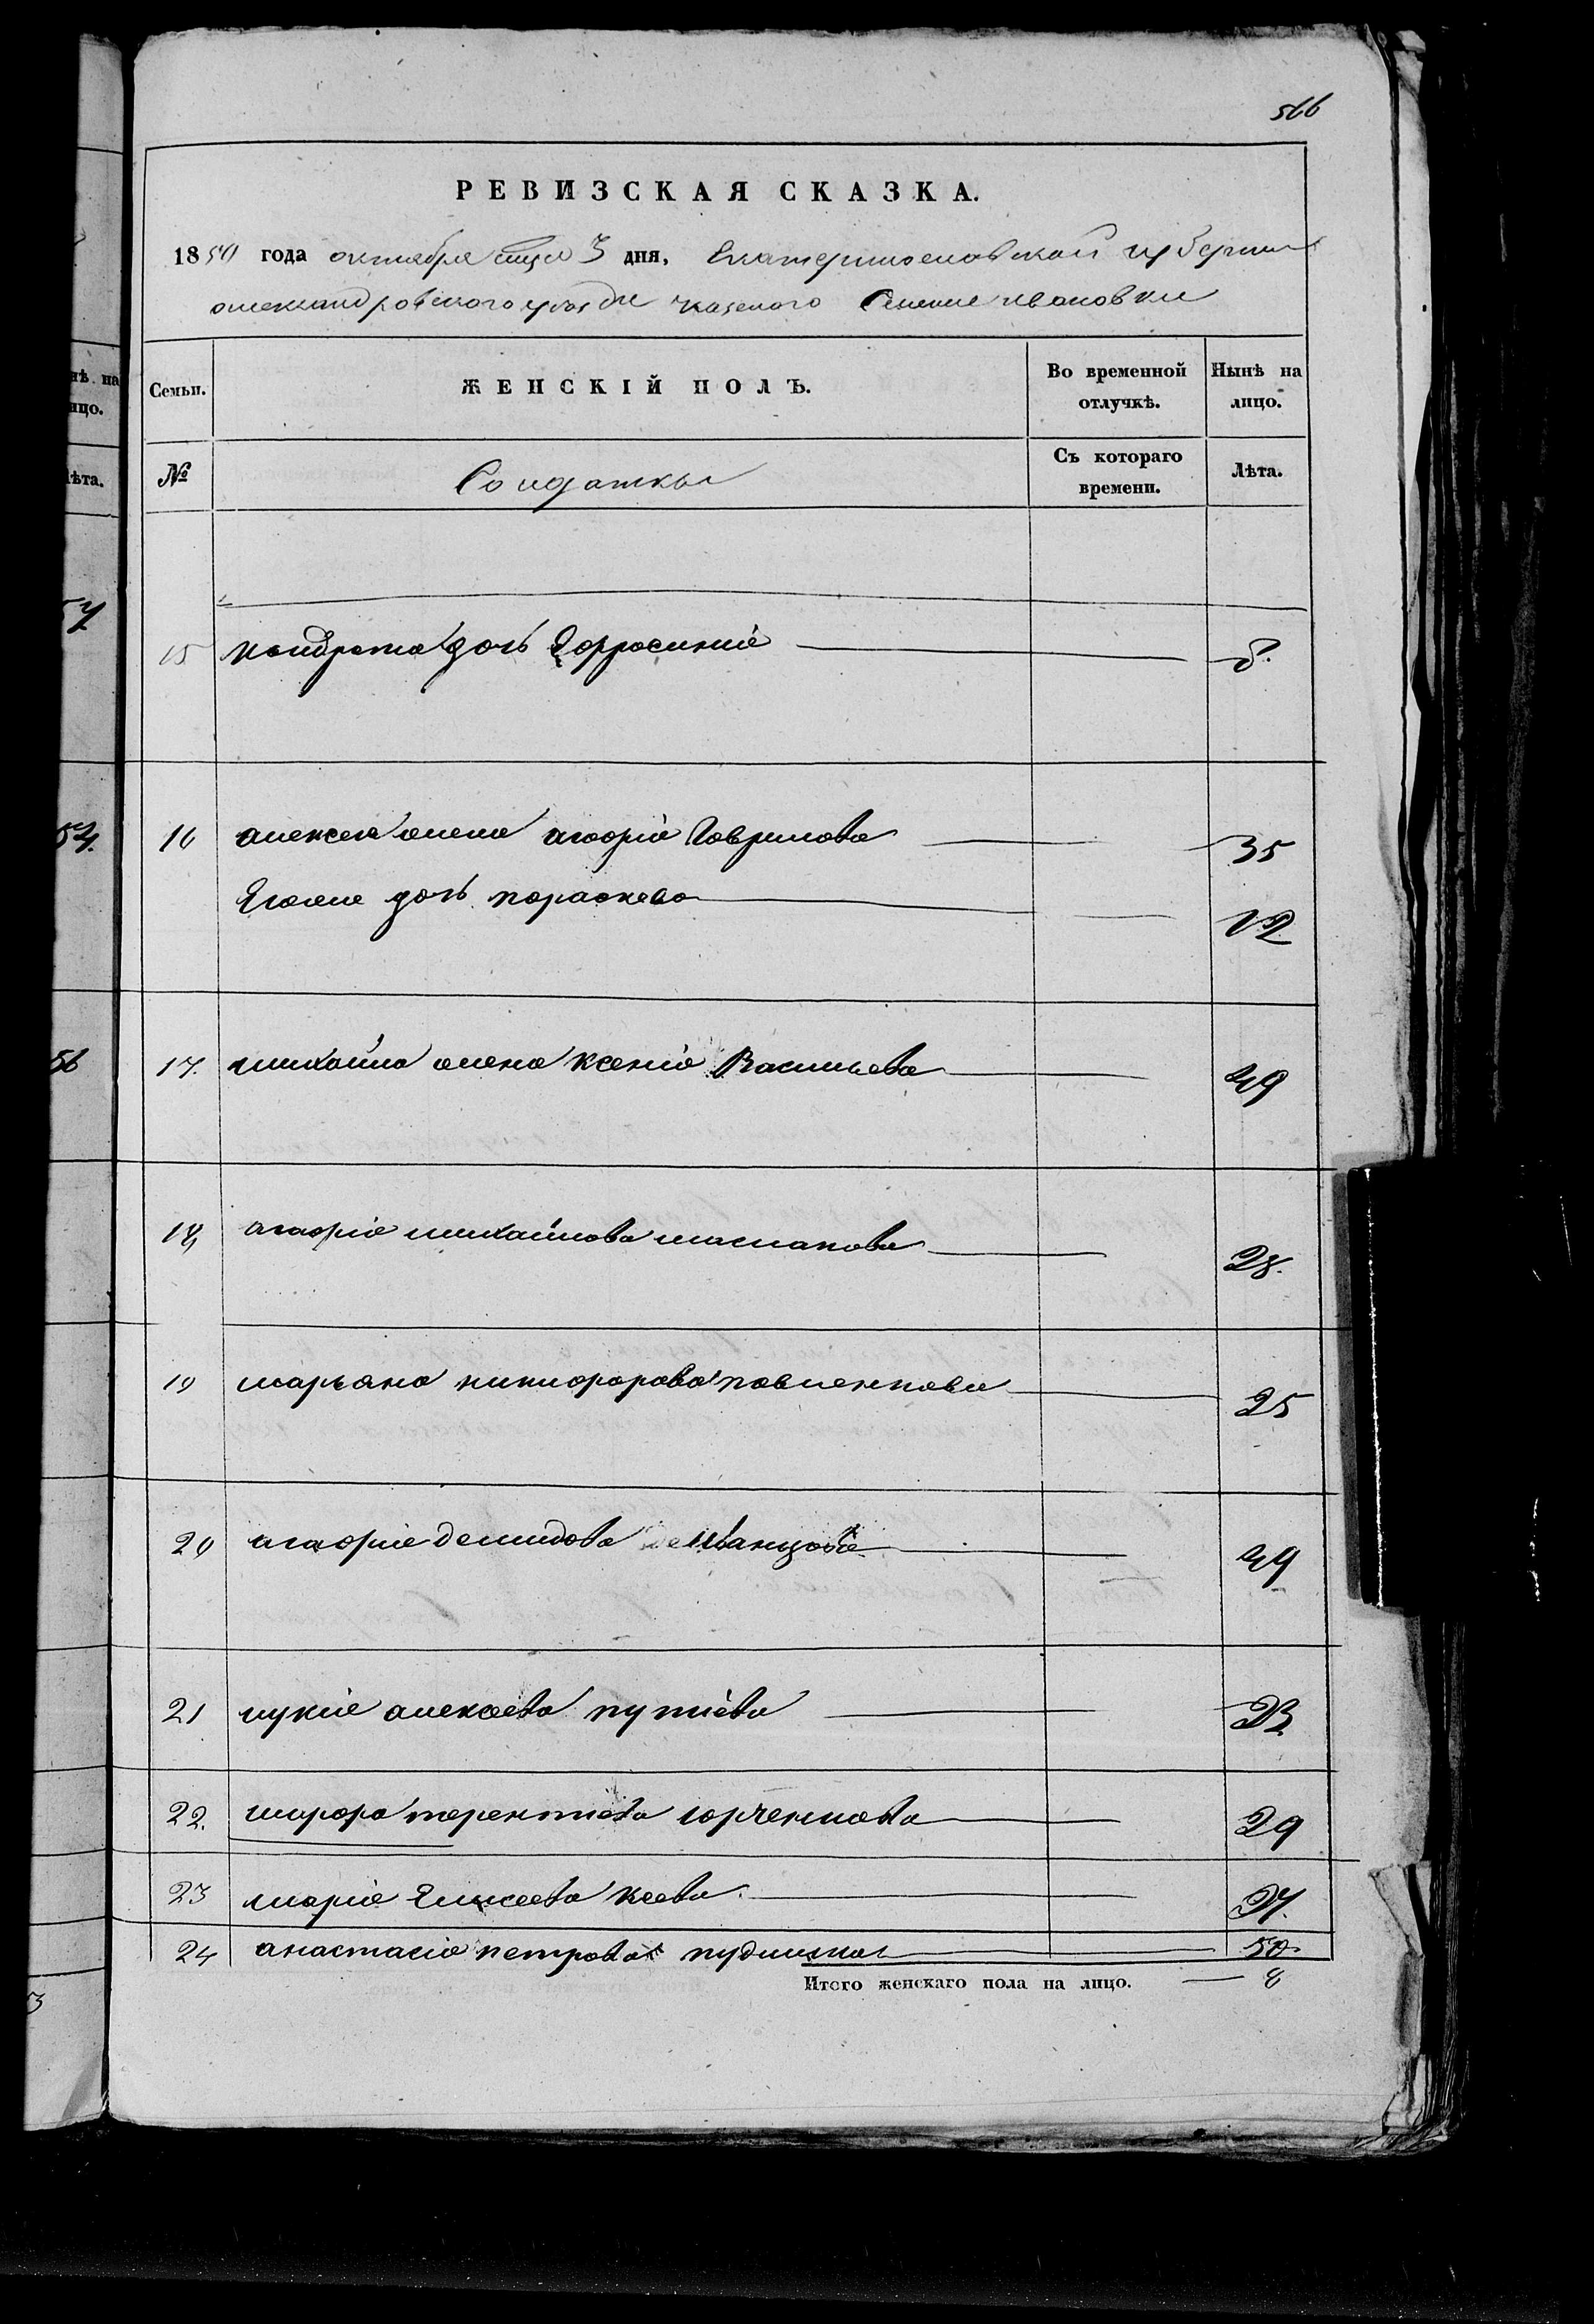 566
РЕВИЗСКАЯ СКАЗКА.
1850 года октября мца 3 дня, Екатеринославской губернии
александровского уезда казеного Селение ивановки
нѣ на
ицо.
Семьи.
ЖЕНСКІЙ ПОЛЪ.
Во временной отлучкѣ.
Нынѣ на лицо.
ѣта.
№
Солдатки
Съ котораго времени.
Лѣта.
15 кондрата дочь Ефросиния
54.
16 алексея жена агафия Гаврилова 35
Его же дочь параскева 12
56
17. михайла жена Ксения Васильева 49
18, агафия михайлова 28.
19 марьяна никифорова павленкова 25
20 агафия демидова 49
21 лукия алексеева путиева
22. терентиева юрченкова 29
23 мария Елисеева
24 анастасия петрова 50
Итого женскаго пола на лицо. — 8